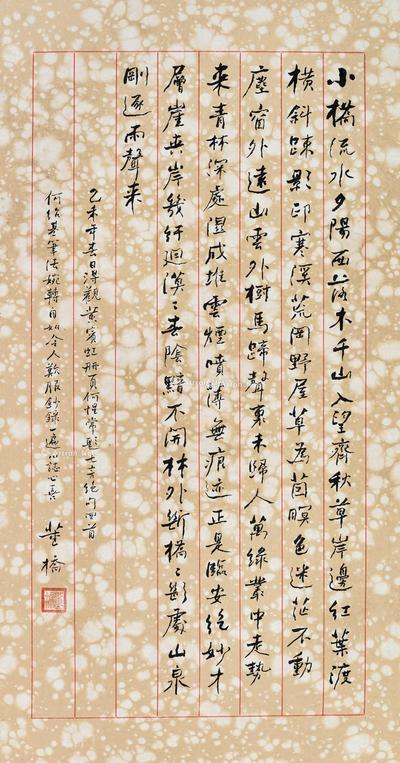 小橋流水夕陽西落木千山入望齊秋草岸邊紅葉渡
橫斜疎影印寒溪荒岡野屋草為茵暝色迷茫不動
塵窗外遠山雲外樹馬蹄聲裏未歸人萬綠叢中走勢
來青林深處濕成堆雲煙噴薄無痕迹正是臨安絕妙才
層崖夾岸幾紆迴漠〻春陰黯不開林外斷橋〻斷處山泉
剛逐雨聲來
乙未年春日得觀黃賓虹冊頁何惺常題七言絕句四首
何紹基筆法婉轉自如令人歎服鈔錄一遍以誌心喜
董橋